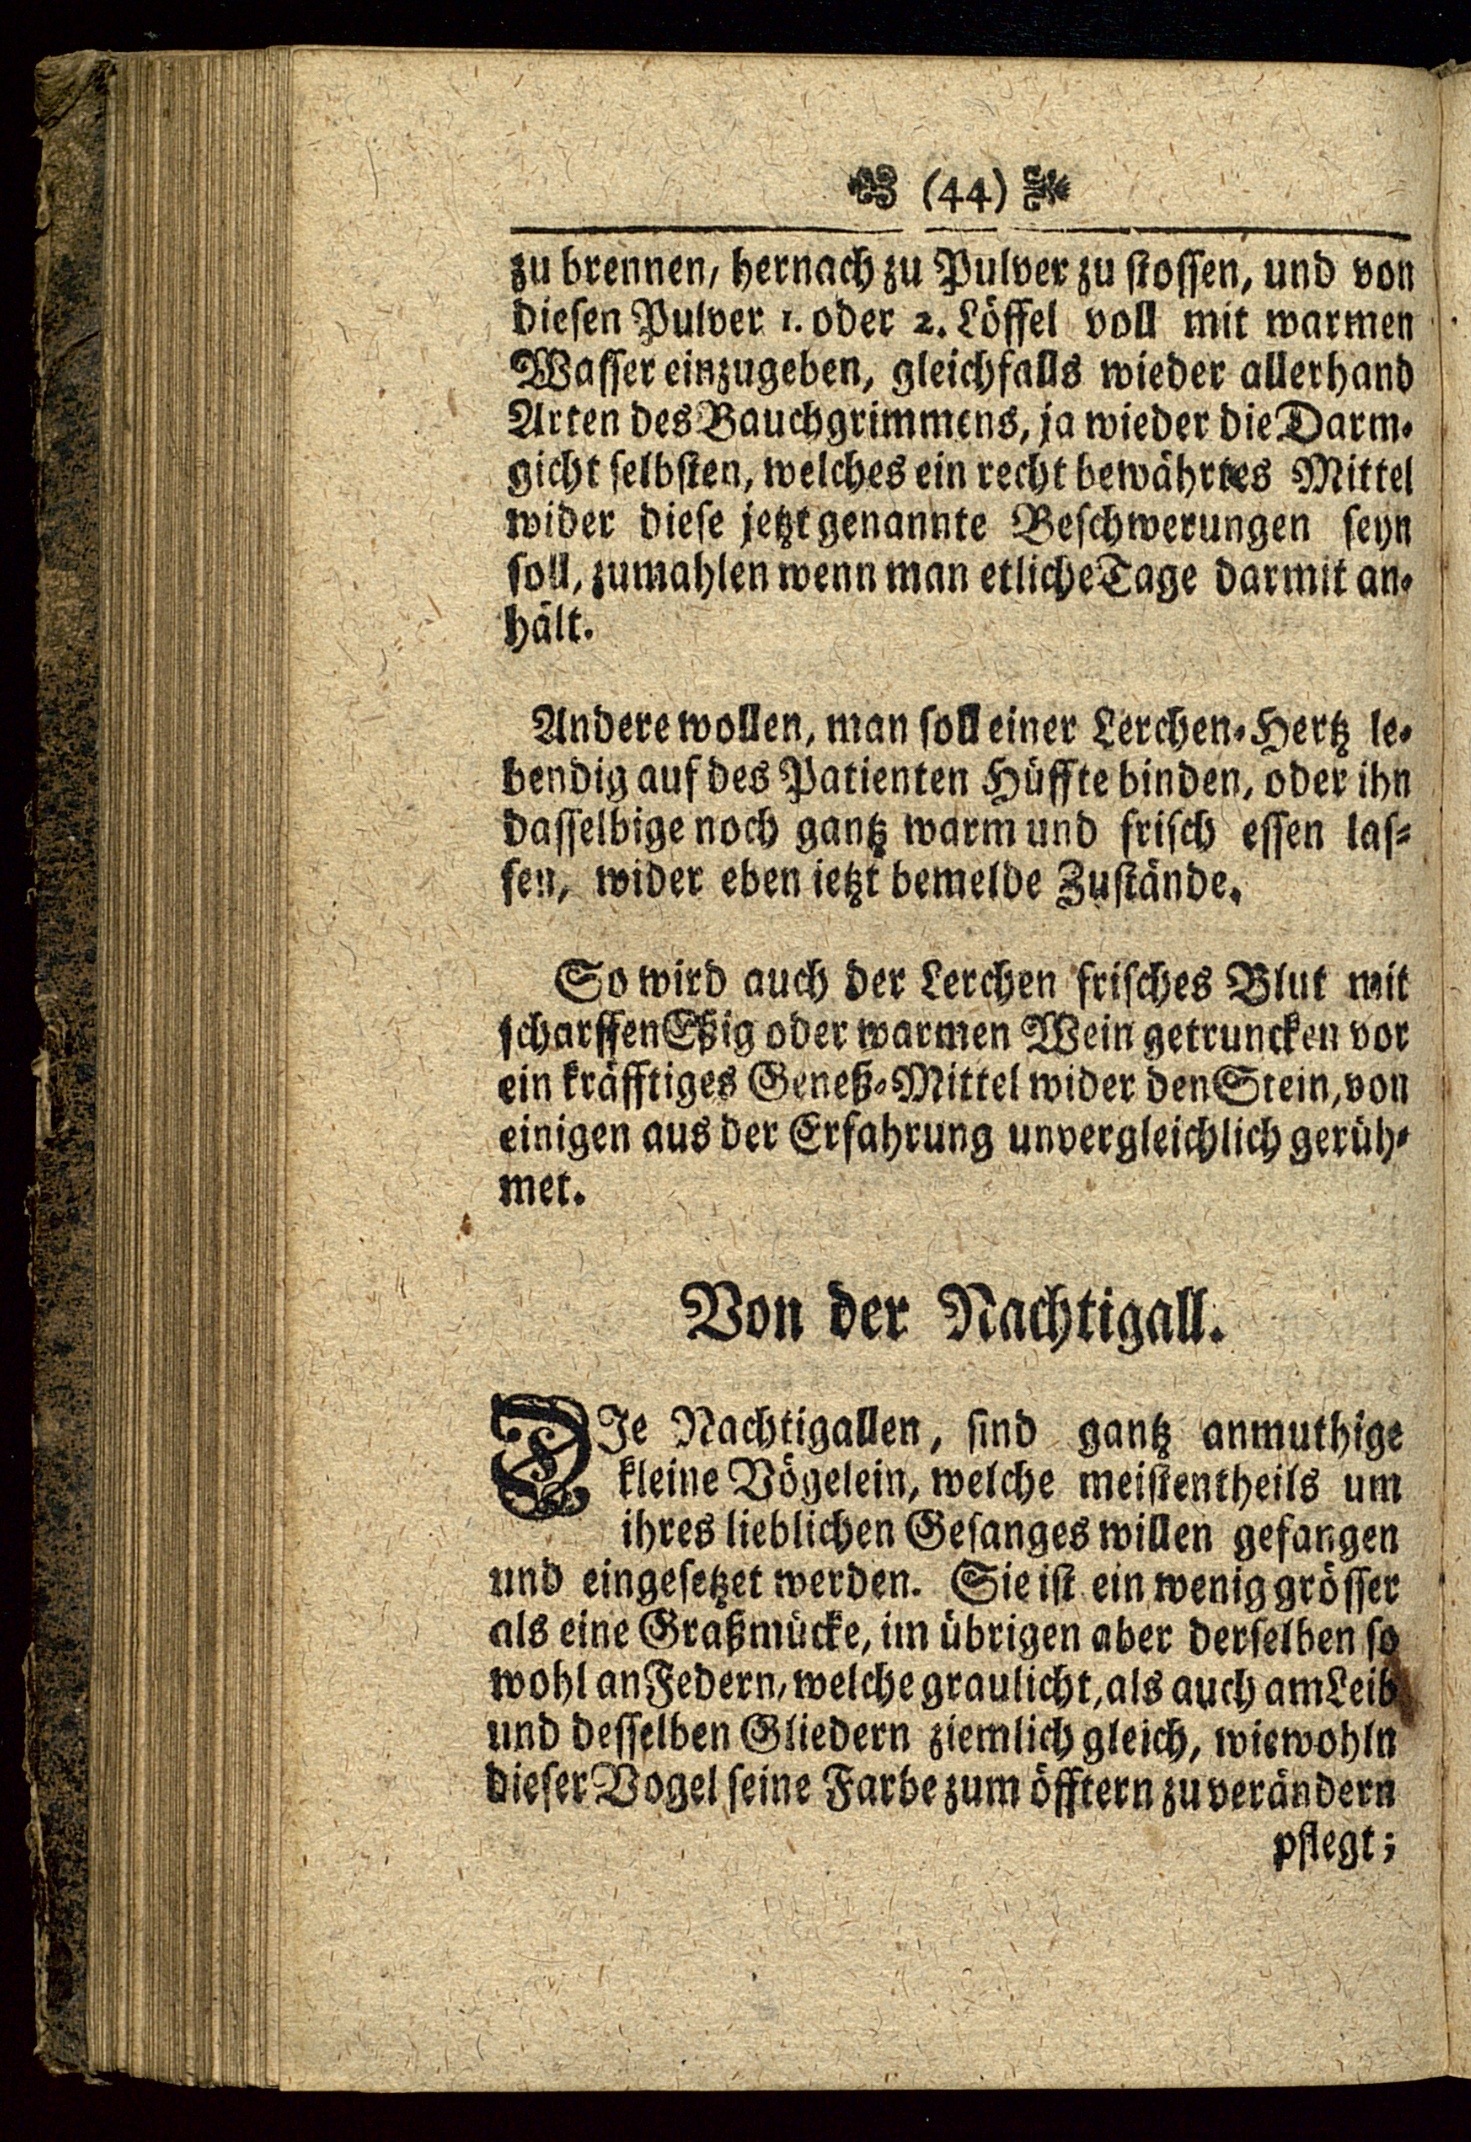 (44)
zu brennen/ hernach zu Pulver zu stossen, und von
diesen Pulver 1. oder 2. Löffel voll mit warmen
Wasser einzugeben, gleichfalls wieder allerhand
Arten des Bauchgrimmens, ja wieder die Darm-
gicht selbsten, welches ein recht bewährtes Mittel
wider diese jetzt genannte Beschwerungen seyn
soll, zumahlen wenn man etliche Tage darmit an-
hält.
Andere wollen, man soll einer Lerchen-Hertz le-
bendig auf des Patienten Hüffte binden, oder ihn
dasselbige noch gantz warm und frisch essen las-
sen, wider eben jetzt bemelde Zustände.
So wird auch der Lerchen frisches Blut mit
scharffen Eßig oder warmen Wein getruncken vor
ein kräfftiges Geneß-Mittel wider den Stein, von
einigen aus der Erfahrung unvergleichlich gerüh-
met.
Von der Nachtigall.
DIe Nachtigallen, sind gantz anmuthige
kleine Vögelein, welche meistentheils um
ihres lieblichen Gesanges willen gefangen
und eingesetzet werden. Sie ist ein wenig grösser
als eine Graßmücke, im übrigen aber derselben so
wohl an Federn/ welche graulicht, als auch am Leib
und desselben Gliedern ziemlich gleich, wiewohln
dieser Vogel seine Farbe zum öfftern zu verändern
pflegt;